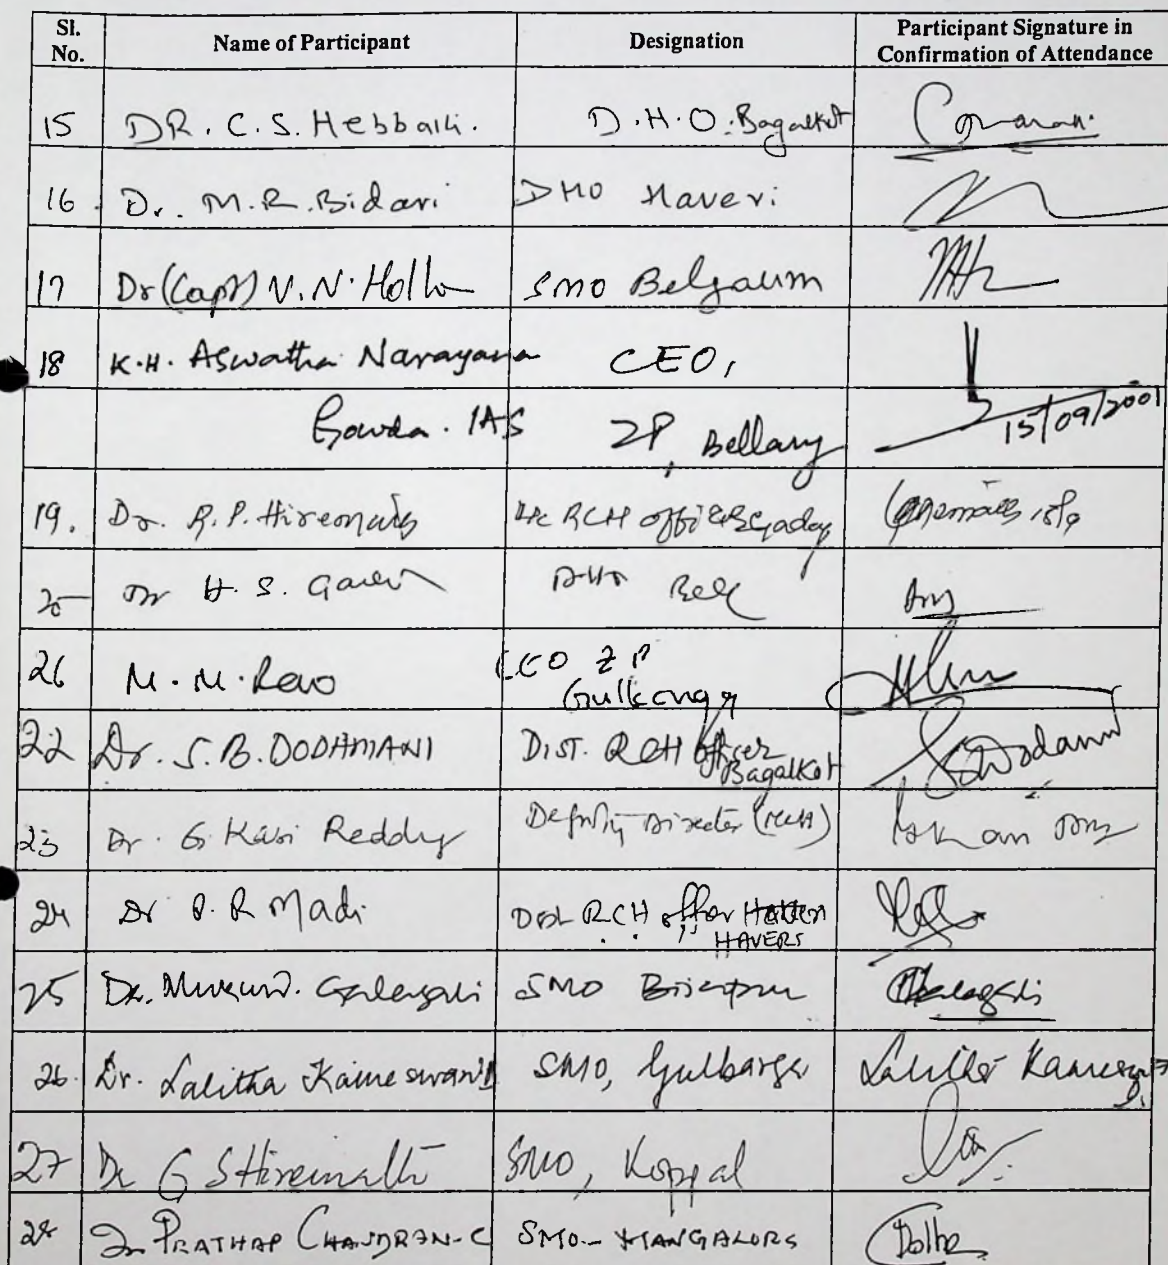 Sl. No. Name of Participant Designation Participant Signature in Confirmation of Attendance
15 DR. C. S. Hebballi. D.H.O. Bagalkot
16. Dr. M.R. Bidari DHO Haveri
17 Dr (Capt) V. N. Holla SMO Belgaum
18 K.H. Aswatha Narayana CEO,
Gowda. IAS ZP, Bellary 15/09/2001
19. Dr. R. P. Hiremath RCH Officer Gadag
20 Dr H. S. DHO
26 M. M. Rao CEO Z P
Gulbarga
22 Dr. S. B. DODHMANI DIST. RCH Officer
Bagalkot
23 Dr. G Kasi Reddy Deputy Director
24 Dr P. R Madi Dist RCH officer
HAVERI
25 Dr. Mukund. Galagali SMO Bijapur
26. Dr. Lalitha Kameswari SMO, Gulbarga
27 Dr G S Hiremath SMO, Koppal
28 Dr PRATHAP CHANDRAN-C SMO- MANGALORE